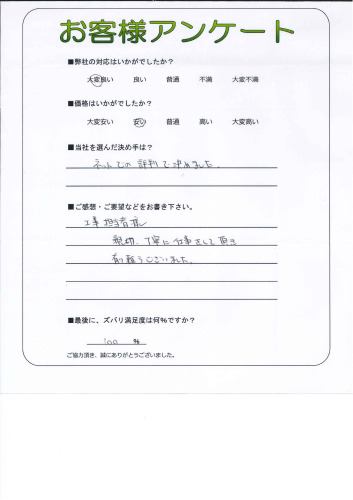 お客様アンケート
■弊社の対応はいかがでしたか？
大変良い 良い 普通 不満 大変不満
■価格はいかがでしたか？
大変安い 安い 普通 高い 大変高い
■当社を選んだ決め手は？
ネットでの評判で決めました。
■ご感想・ご要望などをお書き下さい。
工事担当者様
親切、丁寧に仕事をして頂き
有難うございました。
■最後に、ズバリ満足度は何%ですか？
100 %
ご協力頂き、誠にありがとうございました。